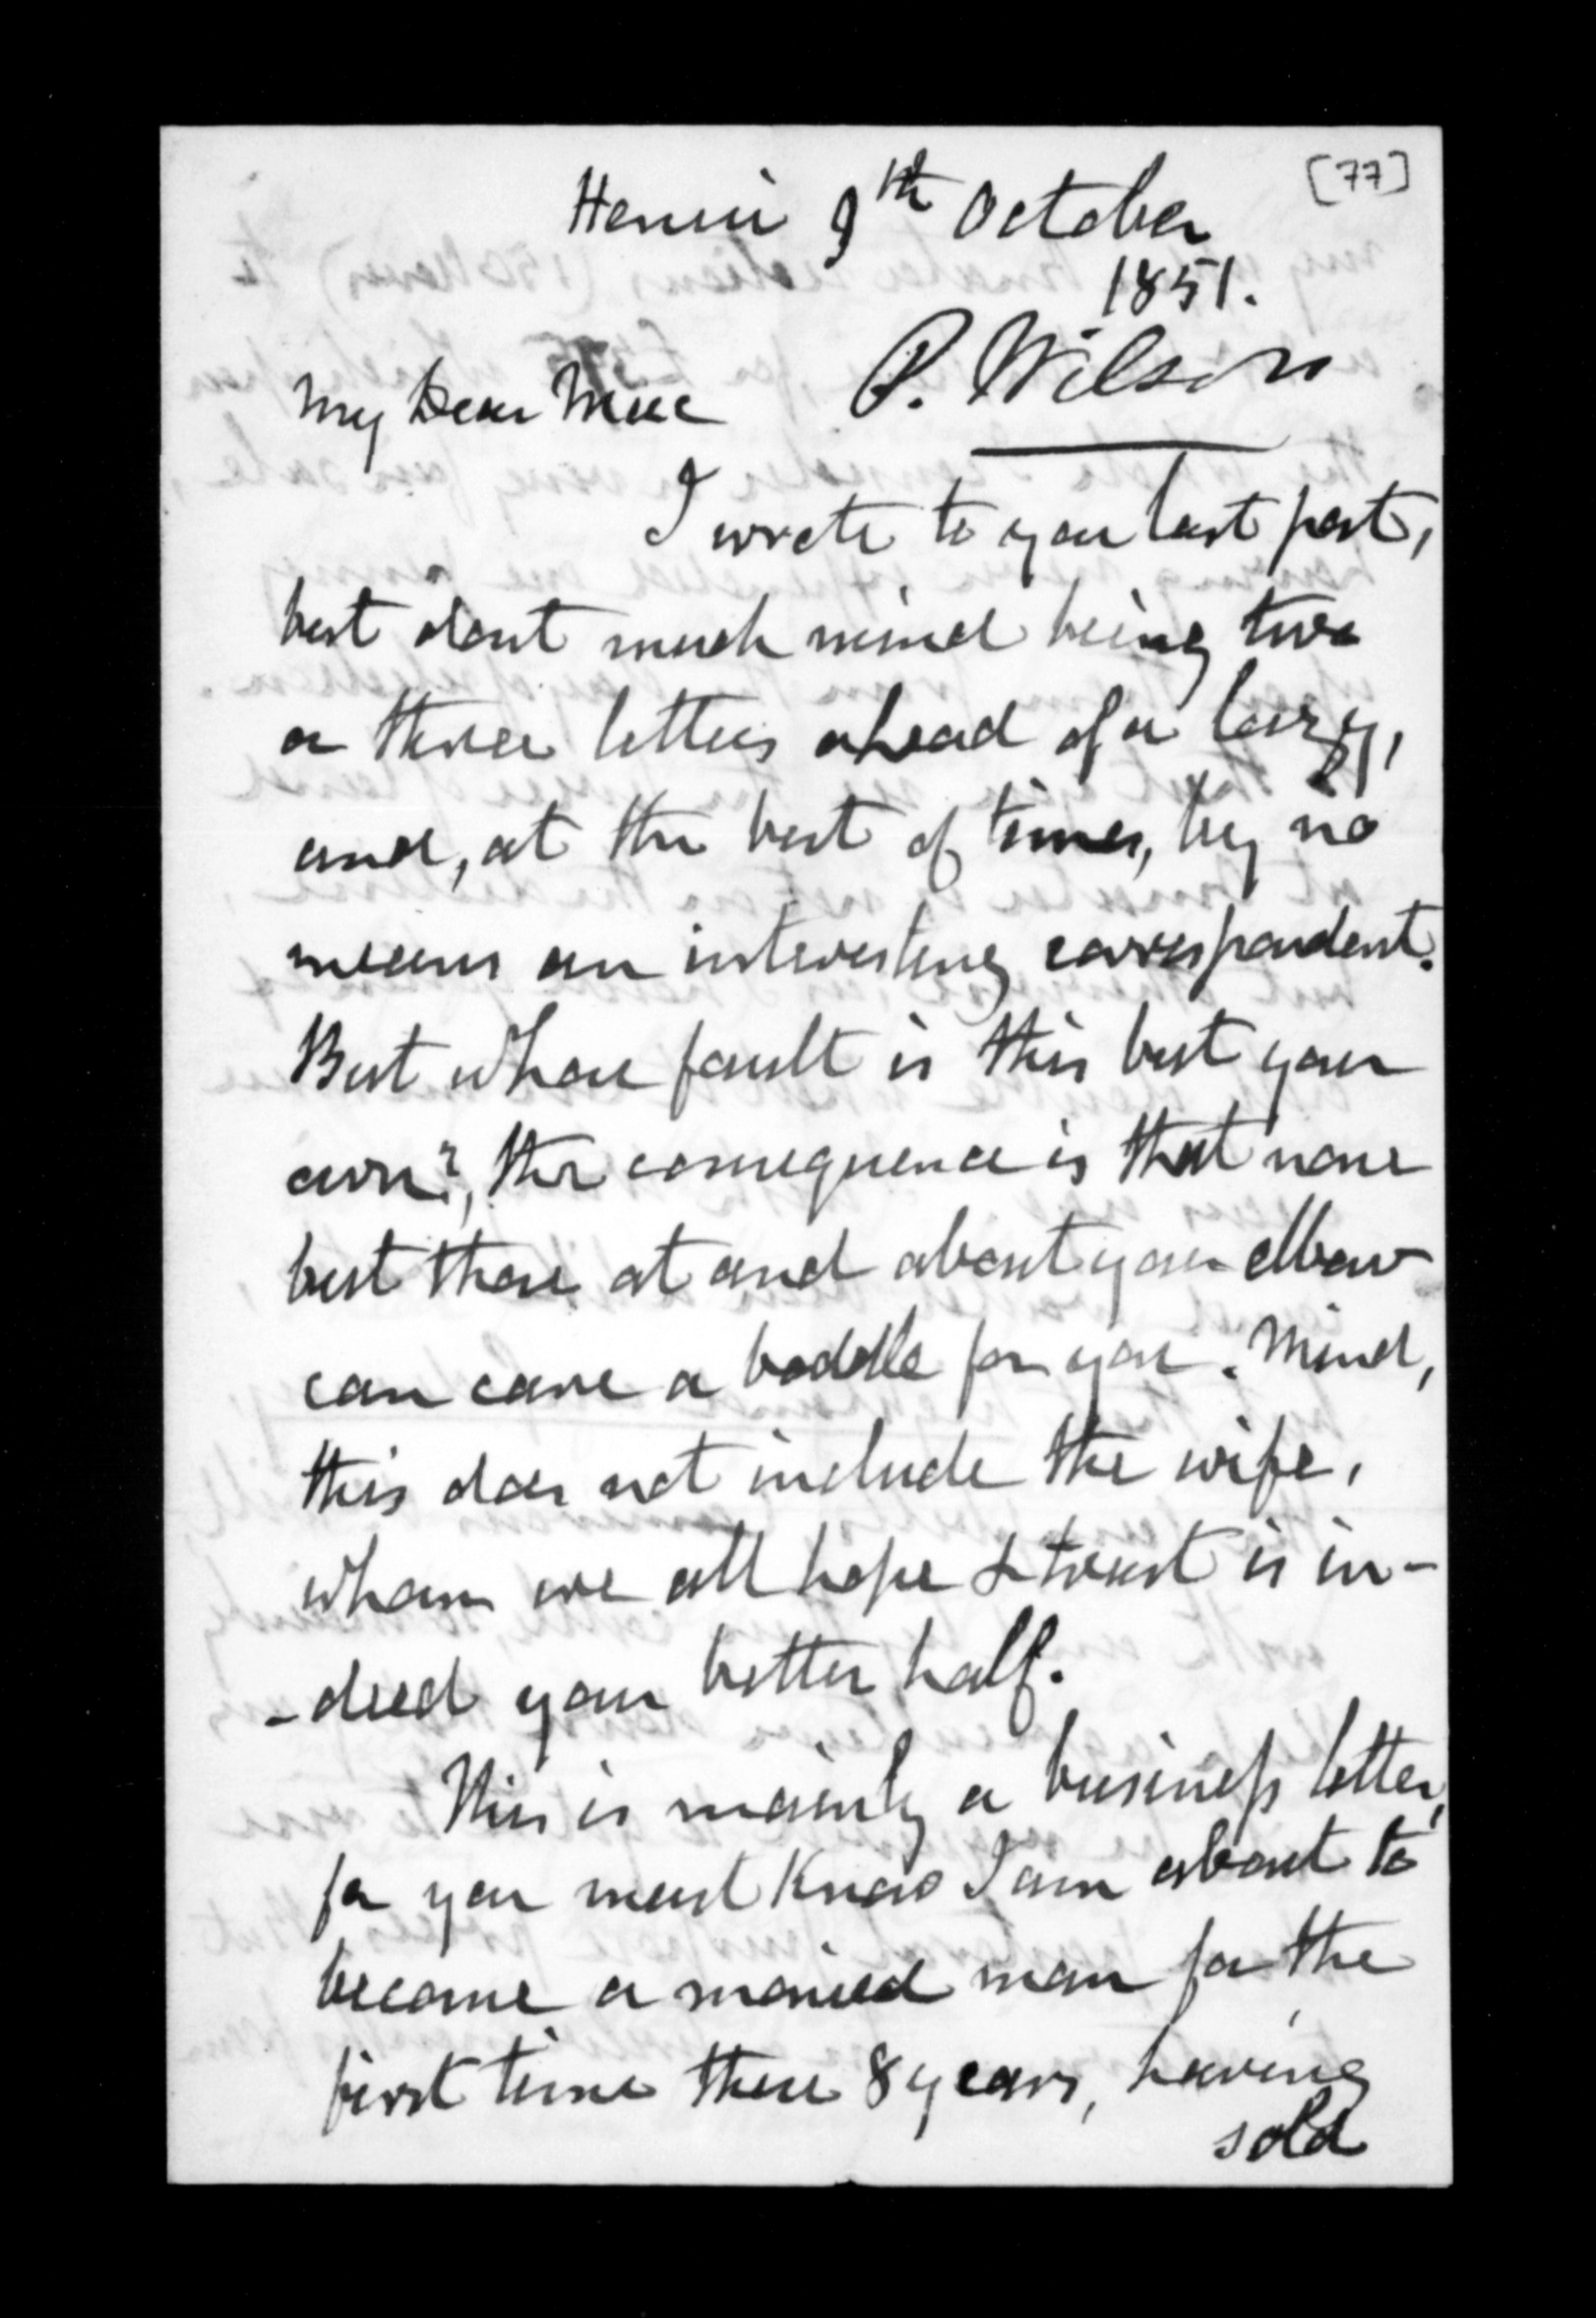 [77]
Hanui 9th October
1851.
P. Wilson
My Dear Mac
I wrote to you last post,
but dont much mind being two
or three letters ahead of a lazy,
and, at the best of times, by no
means an interesting correspondent.
But whose fault is this but your
own?, the consequence is that none
but those at and about your elbow
can care a boddle for you. Mind,
this does not include the wife,
whom we all hope & trust is in-
-deed your better half.
This is mainly a business letter,
for you must know I am about to
become a monied man for the
first time these 8 years, having
sold